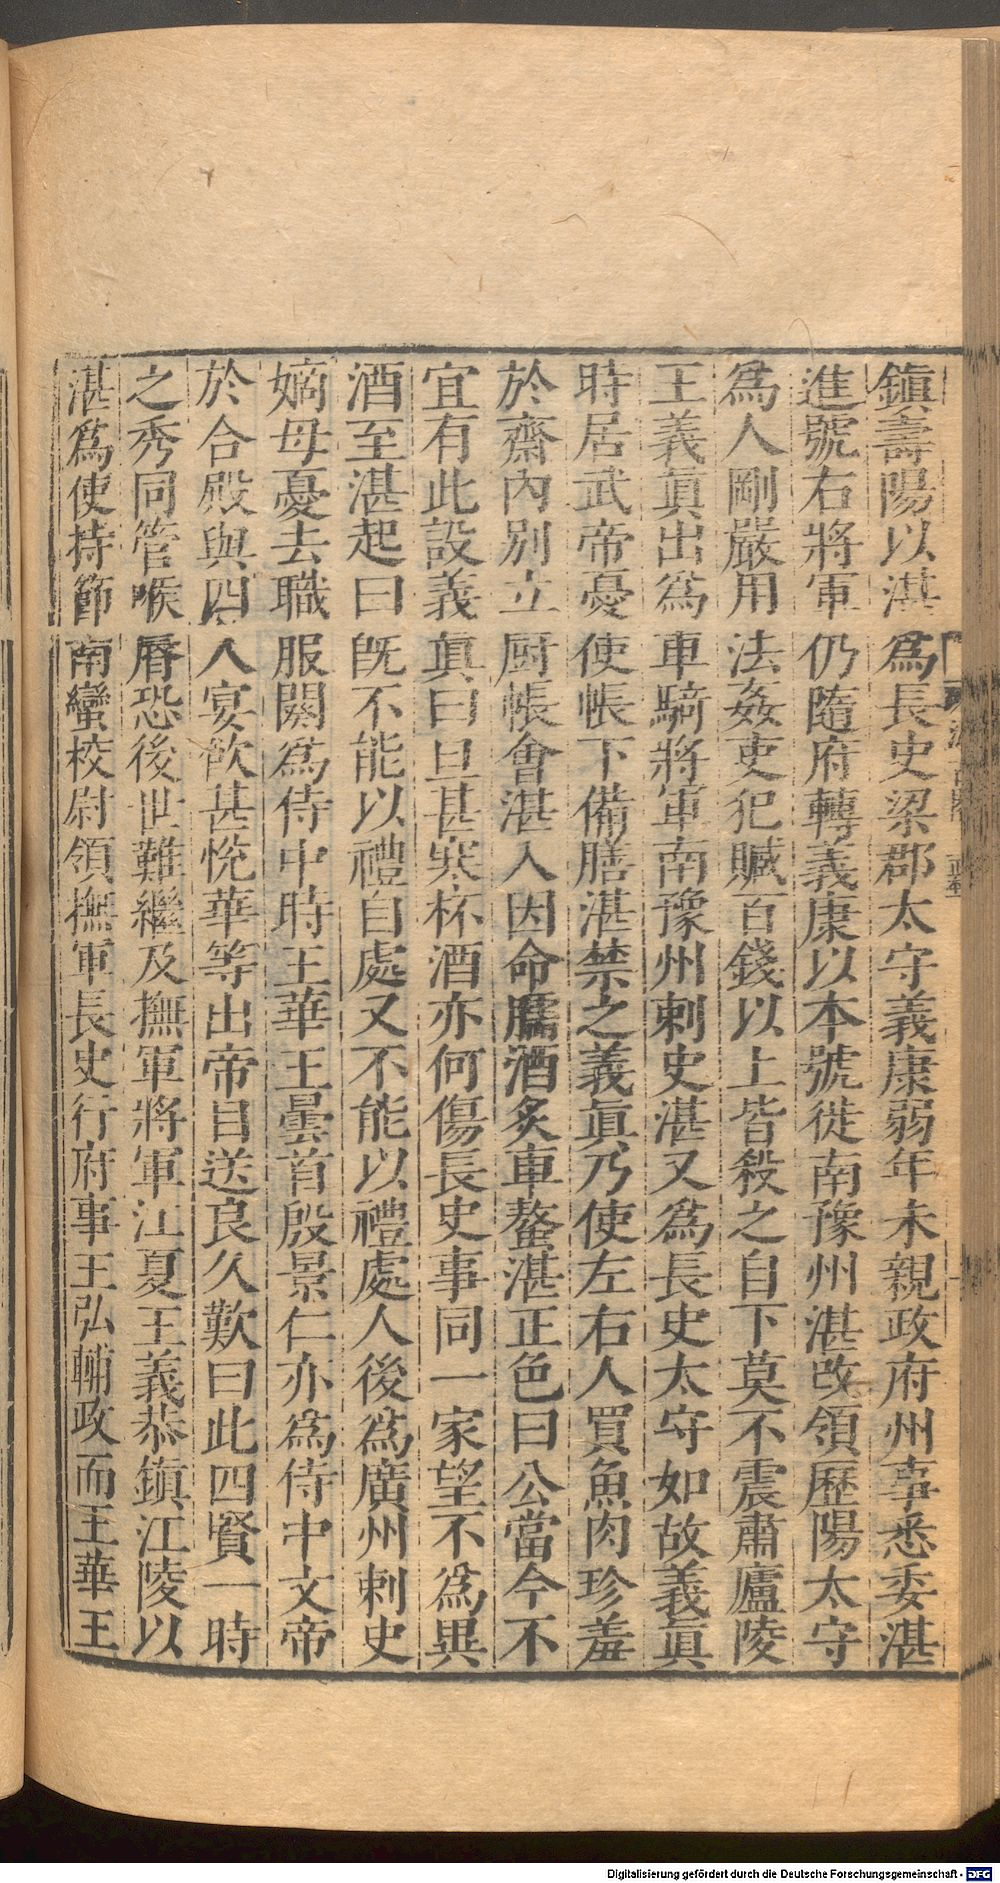 鎮壽陽以湛爲長史梁郡太守義康弱年未親政府州事悉委湛
進號右將軍仍隨府轉義康以本號徙南豫州湛改領歷陽太守
爲人剛嚴用法姦吏犯贓百錢以上皆殺之自下莫不震肅廬陵
王義眞出爲車騎將軍南豫州刺史湛又爲長史太守如故義眞
時居武帝憂使帳下備膳湛禁之義眞乃使左右人買魚肉珍羞
於齋內別立厨帳會湛入因命臑酒炙車螯湛正色曰公當今不
宜有此設義眞曰旦甚寒杯酒亦何傷長史事同一家望不爲異
酒至湛起曰旣不能以禮自處又不能以禮處人後爲廣州刺史
嫡母憂去職服闋爲侍中時王華王曇首殷景仁亦爲侍中文帝
於合殿與四人宴飲甚悅華等出帝目送良久歎曰此四賢一時
之秀同管喉脣恐後世難繼及撫軍將軍江夏王義恭鎮江陵以
湛爲使持節南蠻校尉領撫軍長史行府事王弘輔政而王華王
Digitalisierung gefördert durch die Deutsche Forschungsgemeinschaft - DFG